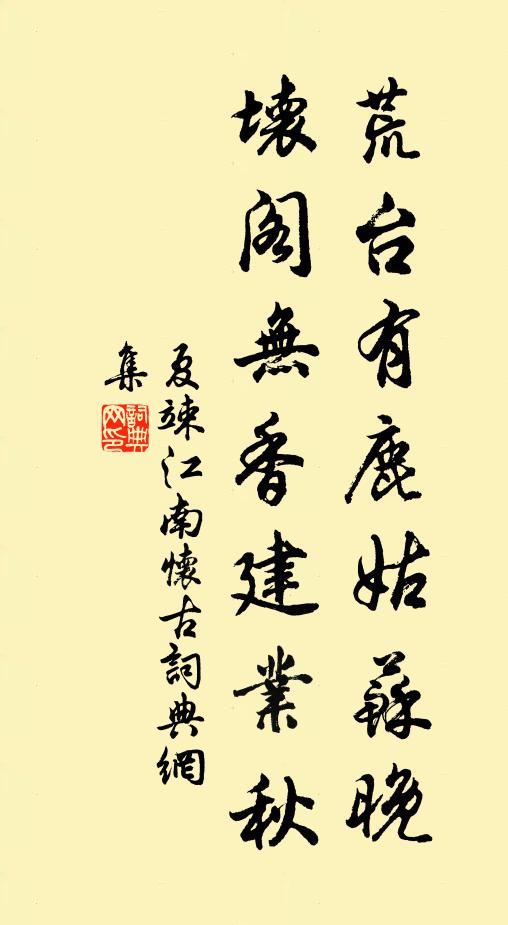 荒台有鹿姑蘇晚
壊阁無香建業秋
夏竦江南懷古詞典網
集
詞典网印